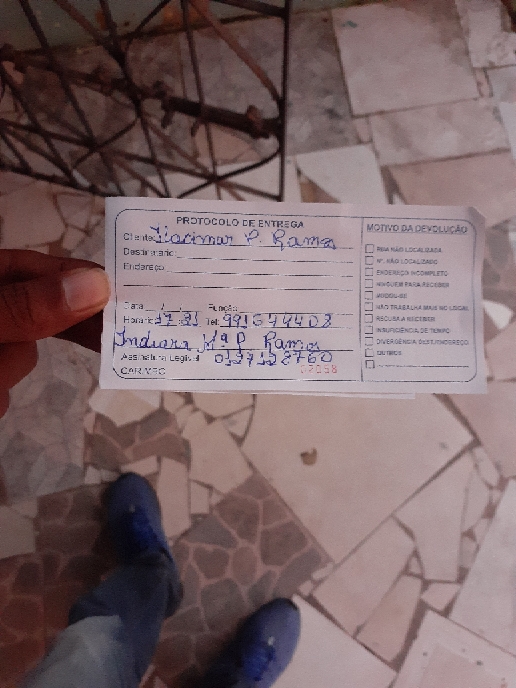 PROTOCOLO DE ENTREGA
Cliente: Jiocimar P. Ramos
Destinatário:
Endereço:
Data / / Função
Horário 17:31 Tel: 991674408
Indiara Mª P. Ramos
Assinatura Legível 0137128760
CARIMBO
MOTIVO DA DEVOLUÇÃO
RUA NÃO LOCALIZADA
Nº. NÃO LOCALIZADO
ENDEREÇO INCOMPLETO
NINGUÉM PARA RECEBER
MUDOU-SE
NÃO TRABALHA MAIS NO LOCAL
RECUSA A RECEBER
INSUFICIÊNCIA DE TEMPO
DIVERGÊNCIA DEST./ENDEREÇO
OUTROS